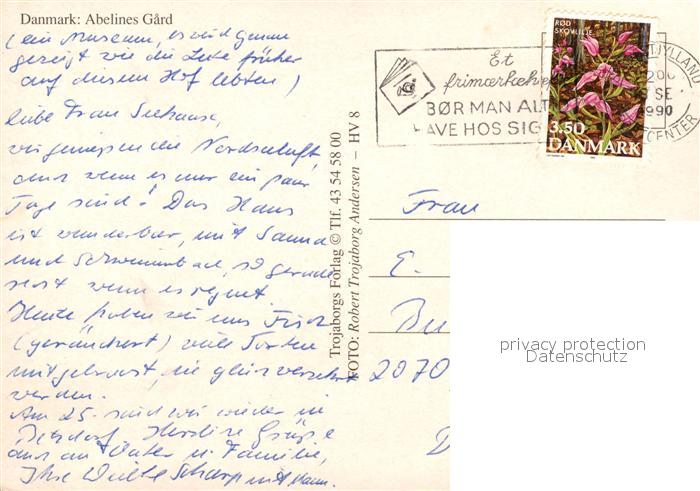 Danmark: Abelines Gård
(ein Museum, es wird genau
gezeigt wie die Leute früher
auf diesem Hof lebten)
liebe Frau Seehause,
wir geniessen die Nordseeluft,
auch wenn es nur ein paar
Tage sind! Das Haus
ist wunderbar, mit Sauna
und Schwimmbad, so gerade
wenn es regnet.
Heute haben wir uns Fisch
(geräuchert) viele Sorten
mitgebracht, die
werden.
Am 25. sind wir wieder in
Herzliche Grüße
auch an Vater u. Familie,
Ihre
Trojaborgs Forlag © Tlf. 43 54 58 00
FOTO: Robert Trojaborg Andersen – HV 8
Et
frimærkehe
BØR MAN ALT
AVE HOS SIG
RØD
SKOVLILJE
3.50
DANMARK
TJYLLAN
SE
1990
CENTER
Frau
E.
2070
privacy protection
Datenschutz